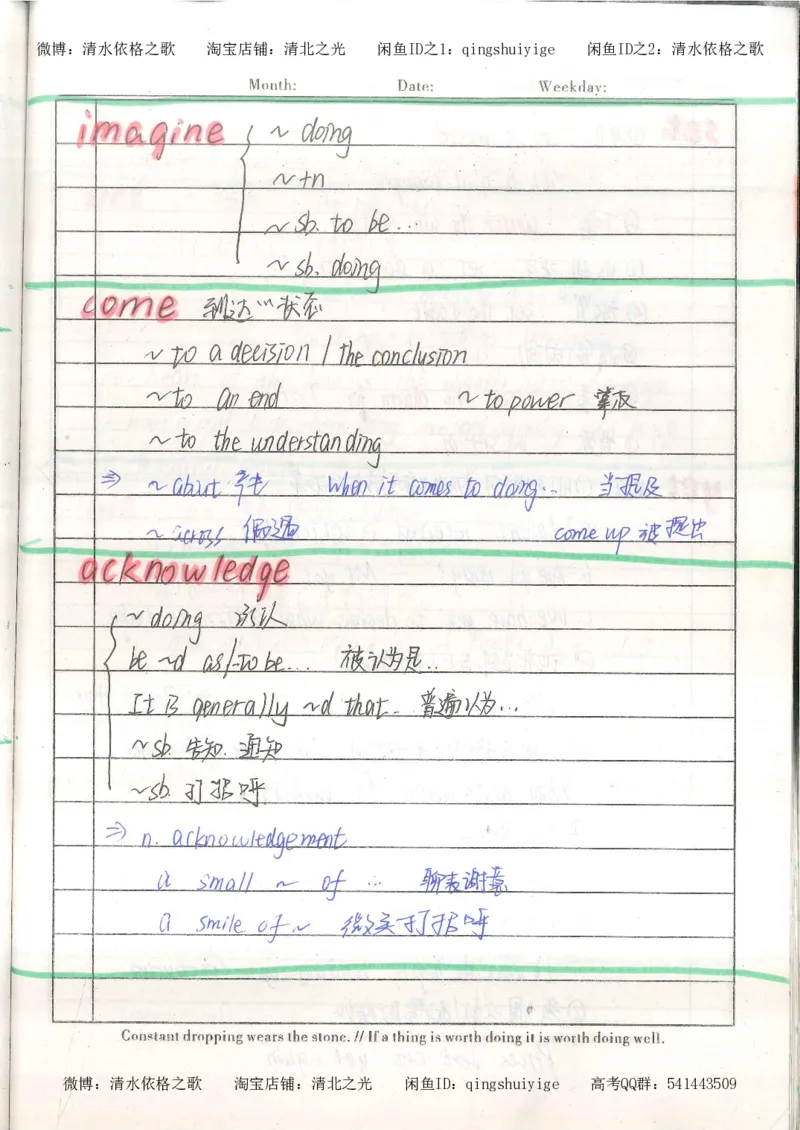 微博：清水依格之歌 淘宝店铺：清北之光 闲鱼ID之1：qingshuiyige 闲鱼ID之2：清水依格之歌
Month: Date: Weekday:
imagine ~ doing
~ +n
~ sb. to be...
~ sb. doing
come 到达…状态
~ to a decision / the conclusion
~ to an end ~ to power 掌权
~ to the understanding
⇒ ~ about 产生 when it comes to doing... 当提及
~ across 偶遇 come up 被提出
acknowledge
~ doing 承认
be ~d as / to be... 被认为是..
It is generally ~d that.. 普遍认为...
~ sb. 告知.通知
~ sb. 打招呼
⇒ n. acknowledgement
a small ~ of ... 聊表谢意
a smile of ~ 微笑打招呼
Constant dropping wears the stone. // If a thing is worth doing it is worth doing well.
微博：清水依格之歌 淘宝店铺：清北之光 闲鱼ID：qingshuiyige 高考QQ群：541443509